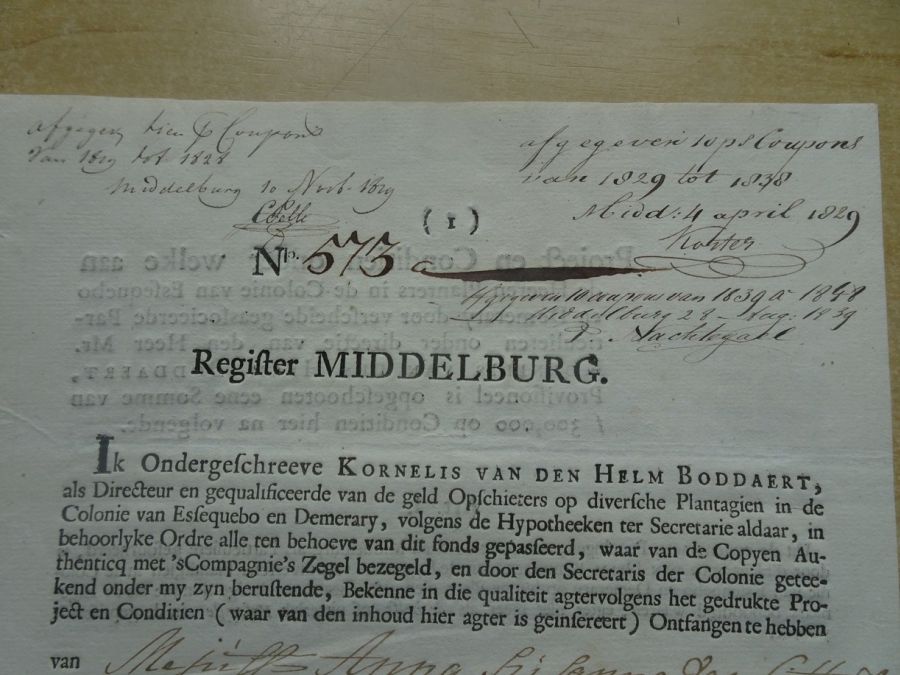 afgegeven tien Coupons
van 1819 tot 1828
Middelburg 10 Novb. 1819
afgegeven 10 ps Coupons
van 1829 tot 1838
Midd: 4 april 1829
(1)
No. 573
Afgegeven 10 coupons van 1839 a 1848
Middelburg 28 Aug: 1839
Nachtegael
Regiſter MIDDELBURG.
Ik Ondergeſchreeve KORNELIS VAN DEN HELM BODDAERT,
als Directeur en gequalificeerde van de geld Opſchieters op diverſche Plantagien in de
Colonie van Eſſequebo en Demerary, volgens de Hypotheeken ter Secretarie aldaar, in
behoorlyke Ordre alle ten behoeve van dit fonds gepaſſeerd, waar van de Copyen Au-
thenticq met 'sCompagnie's Zegel bezegeld, en door den Secretaris der Colonie getee-
kend onder my zyn beruſtende, Bekenne in die qualiteit agtervolgens het gedrukte Pro-
ject en Conditien (waar van den inhoud hier agter is geinſereert) Ontfangen te hebben
van Anna